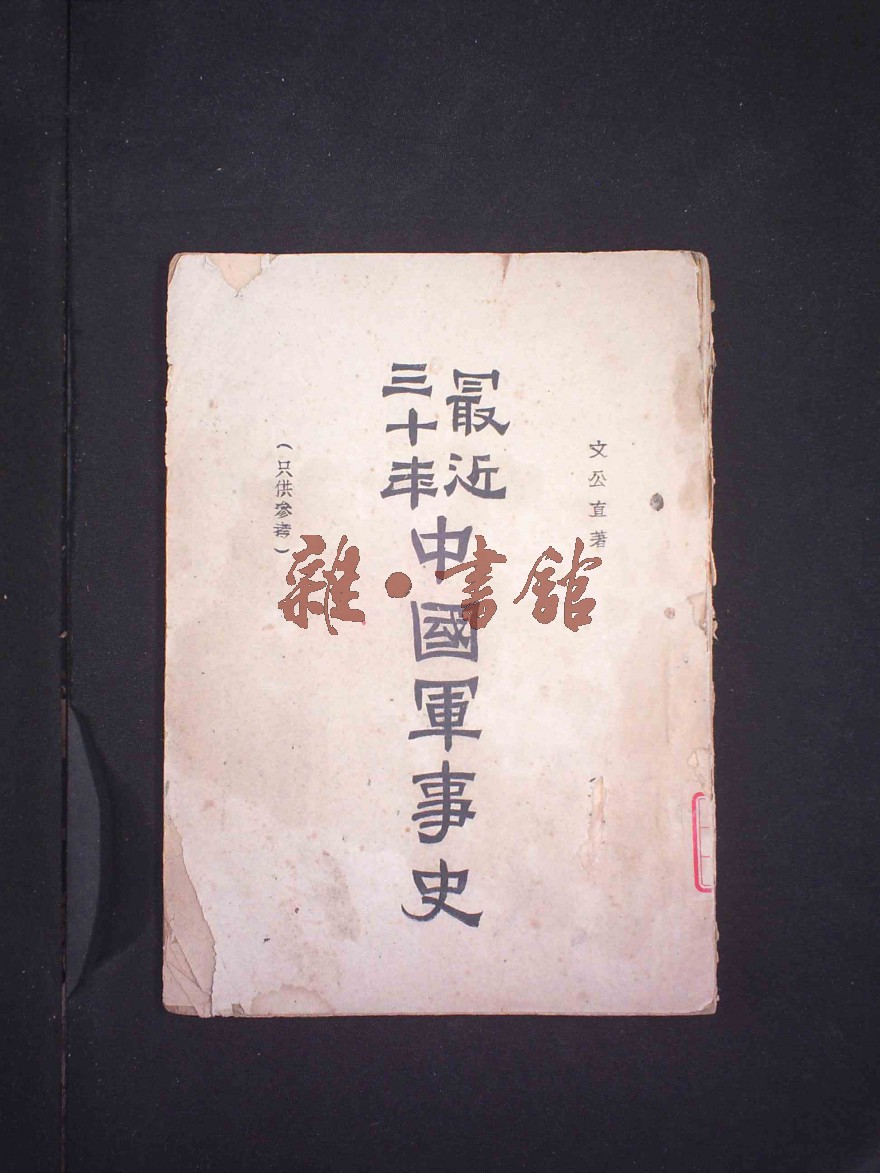 文公直著
最近
三十年
中國軍事史
(只供參考)
雜·書館